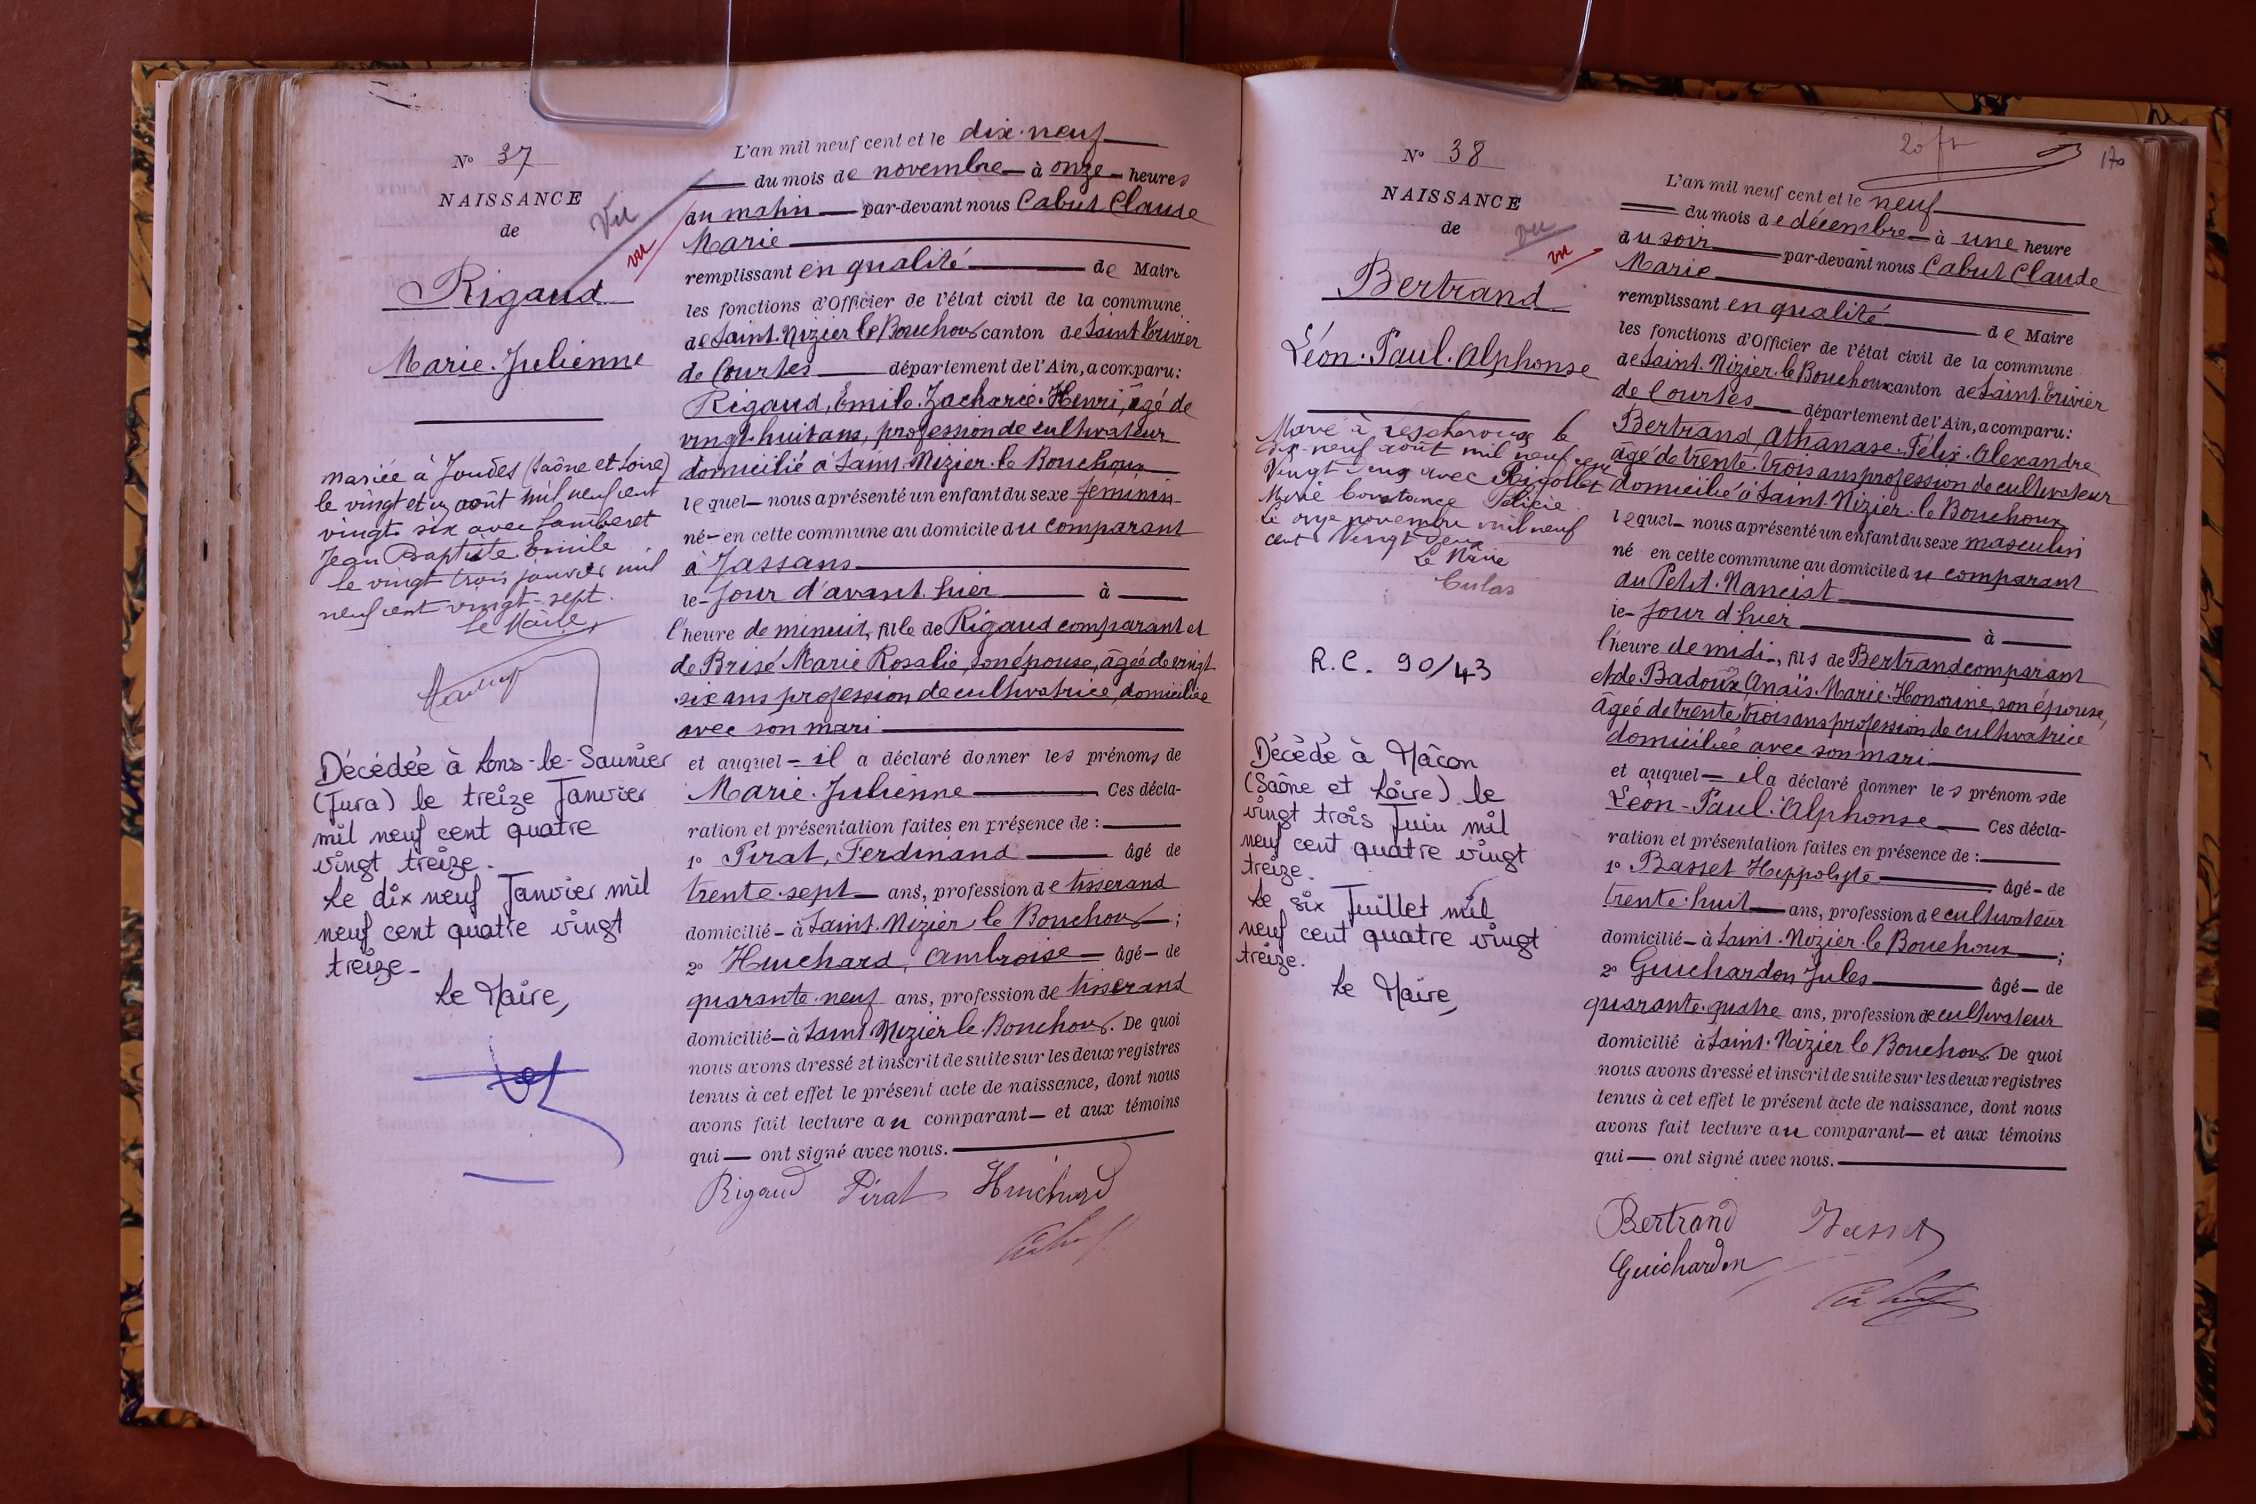 N° 37
NAISSANCE
de
Vu
vu
Rigaud
Marie. Julienne
mariée à Joudes (Saône et Loire)
le vingt et un août mil neuf cent
vingt six avec Lamberet
Jean Baptiste Emile
le vingt trois janvier mil
neuf cent vingt-sept.
Le Maire,
Décédée à Lons-le-Saunier
(Jura) le treize Janvier
mil neuf cent quatre
vingt treize.
Le dix neuf Janvier mil
neuf cent quatre vingt
treize-
Le Maire,
L'an mil neuf cent et le dix-neuf
du mois de novembre à onze heures
du matin par-devant nous Cabut Claude
Marie
remplissant en qualité de Maire
les fonctions d'Officier de l'état civil de la commune
de Saint-Nizier le Bouchoux canton de Saint Trivier
de Courtes département de l'Ain, a comparu:
Rigaud, Emile. Zacharie. Henri, âgé de
vingt-huit ans, profession de cultivateur
domicilié à Saint-Nizier-le Bouchoux
lequel nous a présenté un enfant du sexe féminin
né en cette commune au domicile du comparant
à Jassans
le jour d'avant hier à
l'heure de minuit, fille de Rigaud comparant et
de Brisé Marie Rosalie, son épouse, âgée de vingt
six ans profession de cultivatrice, domiciliée
avec son mari
et auquel il a déclaré donner les prénoms de
Marie. Julienne Ces décla-
ration et présentation faites en présence de :
1° Pirat, Ferdinand âgé de
trente-sept ans, profession de tisserand
domicilié à Saint-Nizier le Bouchoux ;
2° Huichard, Ambroise âgé de
quarante-neuf ans, profession de tisserand
domicilié à Saint Nizier le Bouchoux. De quoi
nous avons dressé et inscrit de suite sur les deux registres
tenus à cet effet le présent acte de naissance, dont nous
avons fait lecture au comparant et aux témoins
qui ont signé avec nous.
Rigaud Pirat Huichard
Cabut
20 fr
170
N° 38
NAISSANCE
de
vu
vu
Bertrand
Léon. Paul. Alphonse
Marié à Lescheroux le
dix-neuf août mil neuf cent
vingt deux avec Rigollet
Marie Constance Félicie
Le onze novembre mil neuf
cent vingt deux
Le Maire
Culas
R.C. 90/43
Décédé à Mâcon
(Saône et Loire) le
vingt trois Juin mil
neuf cent quatre vingt
treize.
Le six Juillet mil
neuf cent quatre vingt
treize.
Le Maire,
L'an mil neuf cent et le neuf
du mois de décembre à une heure
du soir par-devant nous Cabut Claude
Marie
remplissant en qualité de Maire
les fonctions d'Officier de l'état civil de la commune
de Saint-Nizier-le Bouchoux canton de Saint-Trivier
de Courtes département de l'Ain, a comparu:
Bertrand, Athanase. Félix. Alexandre
âgé de trente-trois ans profession de cultivateur
domicilié à Saint-Nizier-le Bouchoux
lequel nous a présenté un enfant du sexe masculin
né en cette commune au domicile du comparant
au Petit-Nancist
le jour d'hier à
l'heure de midi, fils de Bertrand comparant
et de Badoux Anaïs. Marie. Honorine, son épouse,
âgée de trente trois ans profession de cultivatrice
domiciliée avec son mari
et auquel il a déclaré donner les prénoms de
Léon-Paul. Alphonse Ces décla-
ration et présentation faites en présence de :
1° Basset Hippolyte âgé de
trente-huit ans, profession de cultivateur
domicilié à Saint-Nizier le Bouchoux ;
2° Guichardon Jules âgé de
quarante-quatre ans, profession de cultivateur
domicilié à Saint-Nizier le Bouchoux. De quoi
nous avons dressé et inscrit de suite sur les deux registres
tenus à cet effet le présent acte de naissance, dont nous
avons fait lecture au comparant et aux témoins
qui ont signé avec nous.
Bertrand Basset
Guichardon
Cabut